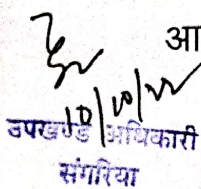 आ
10/10/22
उपखण्ड अधिकारी
संगरिया